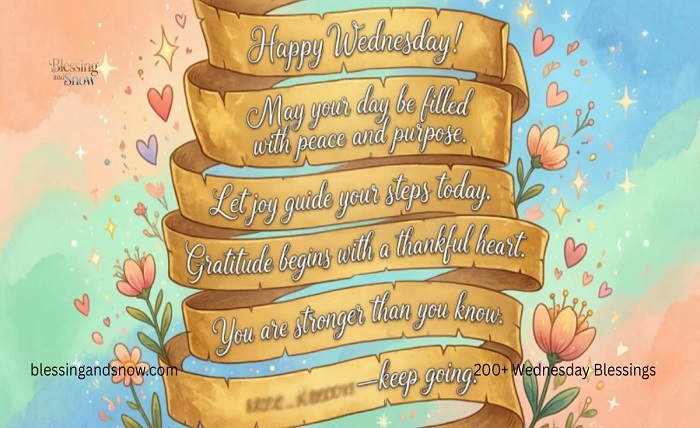 Blessing
and Snow
Happy Wednesday!
May your day be filled
with peace and purpose.
Let joy guide your steps today.
Gratitude begins with a thankful heart.
You are stronger than you know.
—keep going.
blessingandsnow.com
200+ Wednesday Blessings